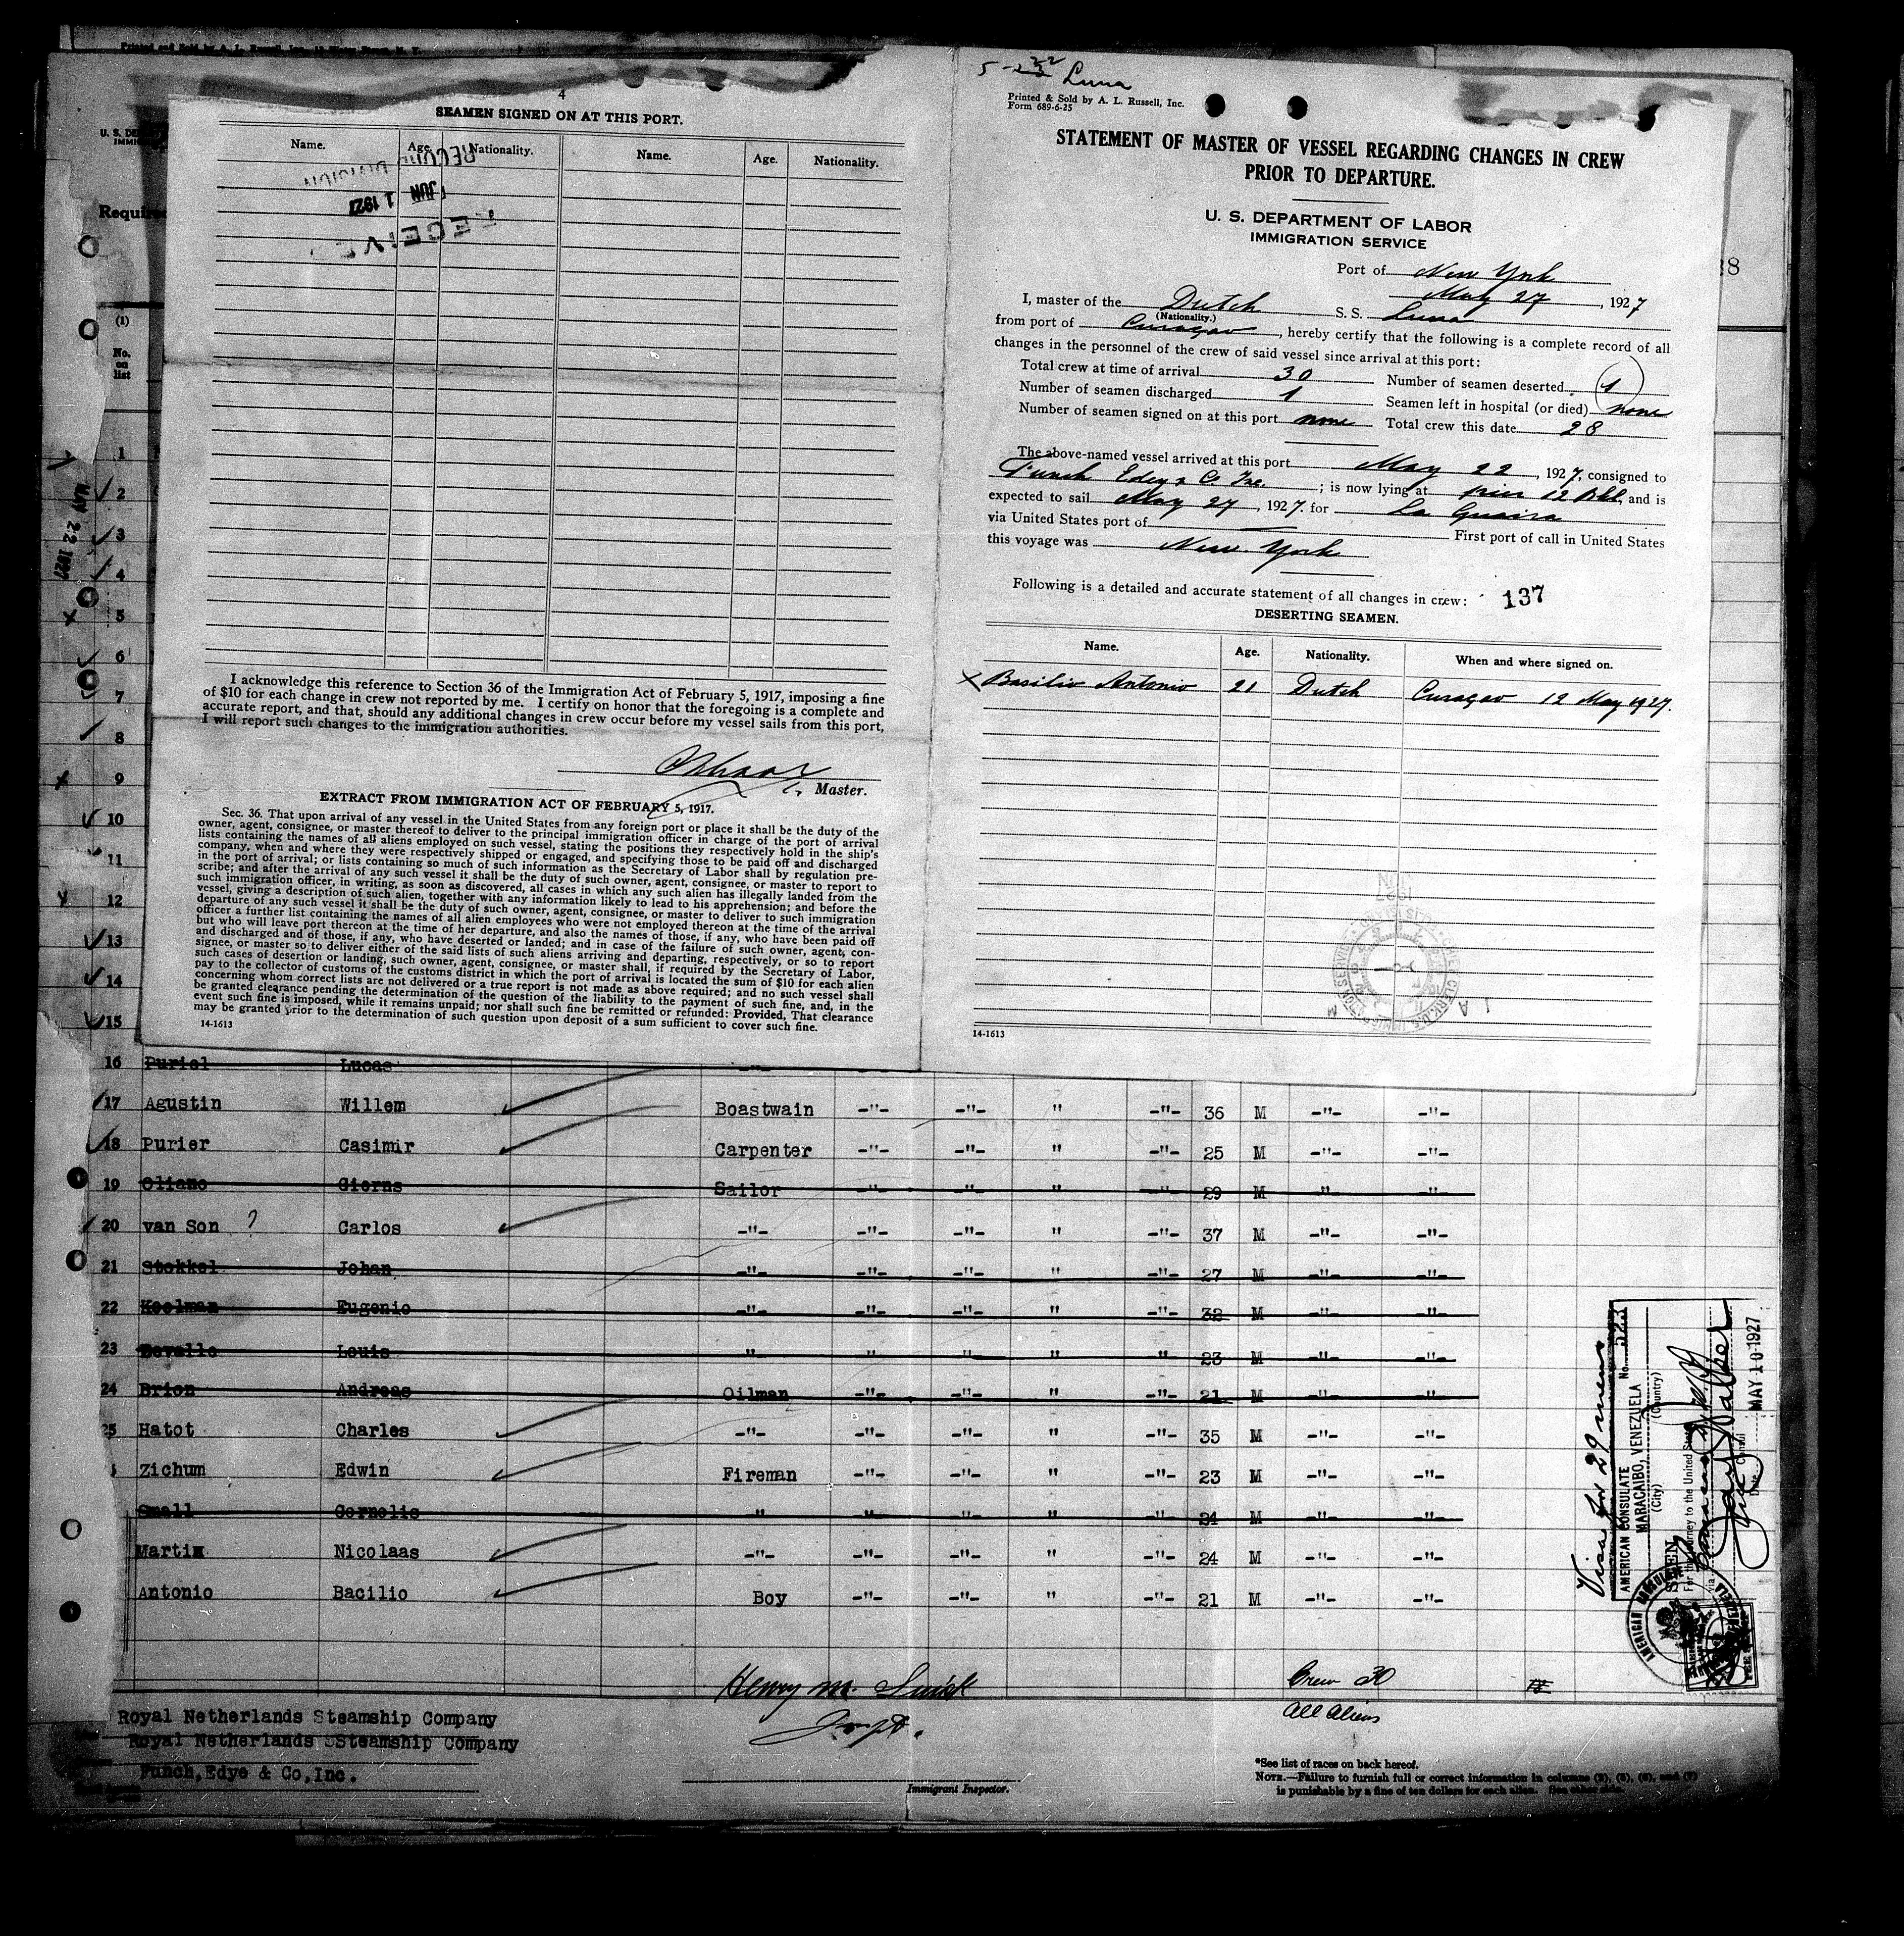 Printed and Sold by A. L. Russell, Inc.
4
SEAMEN SIGNED ON AT THIS PORT.
Name. Age. Nationality. Name. Age. Nationality.
RECORD DIVISION
JUN 1 1927
RECEIVED
I acknowledge this reference to Section 36 of the Immigration Act of February 5, 1917, imposing a fine
of $10 for each change in crew not reported by me. I certify on honor that the foregoing is a complete and
accurate report, and that, should any additional changes in crew occur before my vessel sails from this port,
I will report such changes to the immigration authorities.
Master.
EXTRACT FROM IMMIGRATION ACT OF FEBRUARY 5, 1917.
Sec. 36. That upon arrival of any vessel in the United States from any foreign port or place it shall be the duty of the
owner, agent, consignee, or master thereof to deliver to the principal immigration officer in charge of the port of arrival
lists containing the names of all aliens employed on such vessel, stating the positions they respectively hold in the ship's
company, when and where they were respectively shipped or engaged, and specifying those to be paid off and discharged
in the port of arrival; or lists containing so much of such information as the Secretary of Labor shall by regulation pre-
scribe; and after the arrival of any such vessel it shall be the duty of such owner, agent, consignee, or master to report to
such immigration officer, in writing, as soon as discovered, all cases in which any such alien has illegally landed from the
vessel, giving a description of such alien, together with any information likely to lead to his apprehension; and before the
departure of any such vessel it shall be the duty of such owner, agent, consignee, or master to deliver to such immigration
officer a further list containing the names of all alien employees who were not employed thereon at the time of the arrival
but who will leave port thereon at the time of her departure, and also the names of those, if any, who have been paid off
and discharged and of those, if any, who have deserted or landed; and in case of the failure of such owner, agent, con-
signee, or master so to deliver either of the said lists of such aliens arriving and departing, respectively, or so to report
such cases of desertion or landing, such owner, agent, consignee, or master shall, if required by the Secretary of Labor,
pay to the collector of customs of the customs district in which the port of arrival is located the sum of $10 for each alien
concerning whom correct lists are not delivered or a true report is not made as above required; and no such vessel shall
be granted clearance pending the determination of the question of the liability to the payment of such fine, and, in the
event such fine is imposed, while it remains unpaid; nor shall such fine be remitted or refunded: Provided, That clearance
may be granted prior to the determination of such question upon deposit of a sum sufficient to cover such fine.
14-1613
Luna
Printed & Sold by A. L. Russell, Inc.
Form 689-6-25
STATEMENT OF MASTER OF VESSEL REGARDING CHANGES IN CREW
PRIOR TO DEPARTURE.
U. S. DEPARTMENT OF LABOR
IMMIGRATION SERVICE
Port of New York
May 27, 1927
I, master of the Dutch S. S. Luna
(Nationality.)
from port of Curaçao, hereby certify that the following is a complete record of all
changes in the personnel of the crew of said vessel since arrival at this port:
Total crew at time of arrival 30 Number of seamen deserted 1
Number of seamen discharged 1 Seamen left in hospital (or died) none
Number of seamen signed on at this port none Total crew this date 28
The above-named vessel arrived at this port May 22, 1927, consigned to
Funch Edey & Co Inc. ; is now lying at pier 12 Bkl, and is
expected to sail May 27, 1927. for La Guaira
via United States port of — First port of call in United States
this voyage was New York
Following is a detailed and accurate statement of all changes in crew: 137
DESERTING SEAMEN.
Name. Age. Nationality. When and where signed on.
x Basilio Antonio 21 Dutch Curaçao 12 May 1927.
14-1613
(1)
No.
on
list
MAY 22 1927
1
2
3
4
5
6
7
8
9
10
11
12
13
14
15
16 Puriel Lucas -"-
17 Agustin Willem Boastwain -"- -"- " -"- 36 M -"- -"-
18 Purier Casimir Carpenter -"- -"- " -"- 25 M -"- -"-
19 Oliano Gierns Sailor -"- -"- " -"- 29 M -"- -"-
20 van Son ? Carlos -"- -"- -"- " -"- 37 M -"- -"-
21 Stokkel Johan -"- -"- -"- " -"- 27 M -"- -"-
22 Koolman Eugenio -"- -"- -"- " -"- 32 M -"- -"-
23 Louis " -"- -"- " -"- 23 M -"- -"-
24 Brion Andreas Oilman -"- -"- " -"- 21 M -"- -"-
25 Hatot Charles -"- -"- -"- " -"- 35 M -"- -"-
Zichum Edwin Fireman -"- -"- " -"- 23 M -"- -"-
Small Cornelis " -"- -"- " -"- 24 M -"- -"-
Martin Nicolaas -"- -"- -"- " -"- 24 M -"- -"-
Antonio Bacilio Boy -"- -"- " -"- 21 M -"- -"-
Visa for 29 names
AMERICAN CONSULATE No.
MARACAIBO, VENEZUELA
(City) (Country)
SEEN
For the journey to the United States
via
Consul
Date MAY 10 1927
Henry M.
Insp.
Crew 30
All Aliens
Royal Netherlands Steamship Company
Royal Netherlands Steamship Company
Funch, Edye & Co, Inc.
Immigrant Inspector.
*See list of races on back hereof.
NOTE.—Failure to furnish full or correct information in columns (2), (5), (6), and (7)
is punishable by a fine of ten dollars for each alien. See other side.